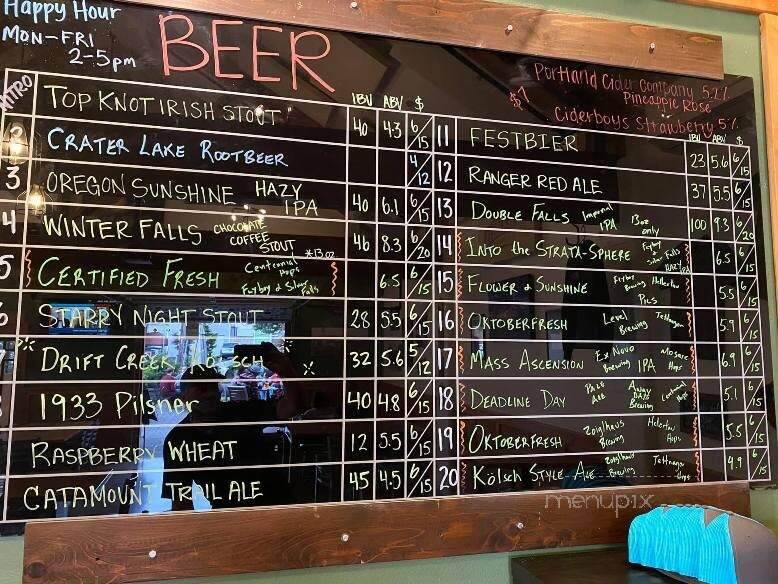 Happy Hour
MON-FRI
2-5pm
BEER
$7 Portland Cider Company 5.2%
Pineapple Rosé
Ciderboys Strawberry 5%
NITRO
IBU ABV $
TOP KNOT IRISH STOUT 40 4.3 6/15
2 CRATER LAKE ROOTBEER 4/12
3 OREGON SUNSHINE HAZY IPA 40 6.1 6/15
4 WINTER FALLS CHOCOLATE COFFEE STOUT *13oz 46 8.3 6/20
5 CERTIFIED FRESH Centennial Hops Freybrg & Silver Falls 6.5 6/15
6 STARRY NIGHT STOUT 28 5.5 6/15
DRIFT CREEK KÖLSCH 32 5.6 5/12
1933 Pilsner 40 4.8 6/15
RASPBERRY WHEAT 12 5.5 6/15
CATAMOUNT TRAIL ALE 45 4.5 6/15
IBU ABV $
11 FESTBIER 23 5.6 6/15
12 RANGER RED ALE 37 5.5 6/15
13 DOUBLE FALLS Imperial IPA 13oz only 100 9.3 6/20
14 INTO the STRATA-SPHERE 6.5 6/15
15 FLOWER & SUNSHINE Brewing Pils 5.5 6/15
16 OKTOBERFRESH Level Brewing Tettnanger 5.9 6/15
17 MASS ASCENSION Ex Novo Brewing IPA Mosaic Hops 6.9 6/15
18 DEADLINE DAY PALE ALE AWAY DAYS Brewing Centennial Hops 5.1 6/15
19 OKTOBERFRESH Zoiglhaus Brewing Hops 5.5 6/15
20 KÖLSCH STYLE ALE Zoiglhaus Brewing Tettnanger Hops 4.9 6/15
menupix